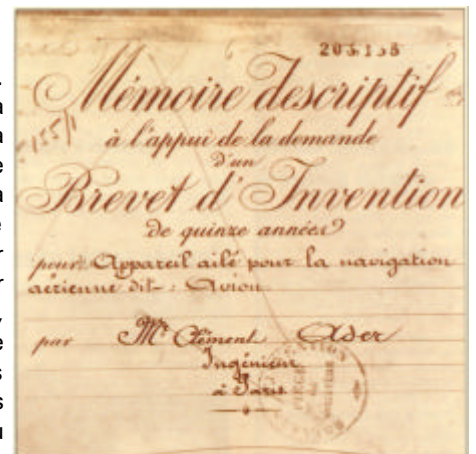 203.158
Mémoire descriptif
155/1
à l'appui de la demande
d'un
Brevet d'Invention
de quinze années
pour: Appareil ailé pour la navigation
aérienne dit : Avion
par Mr Clément Ader
Ingénieur
à Paris